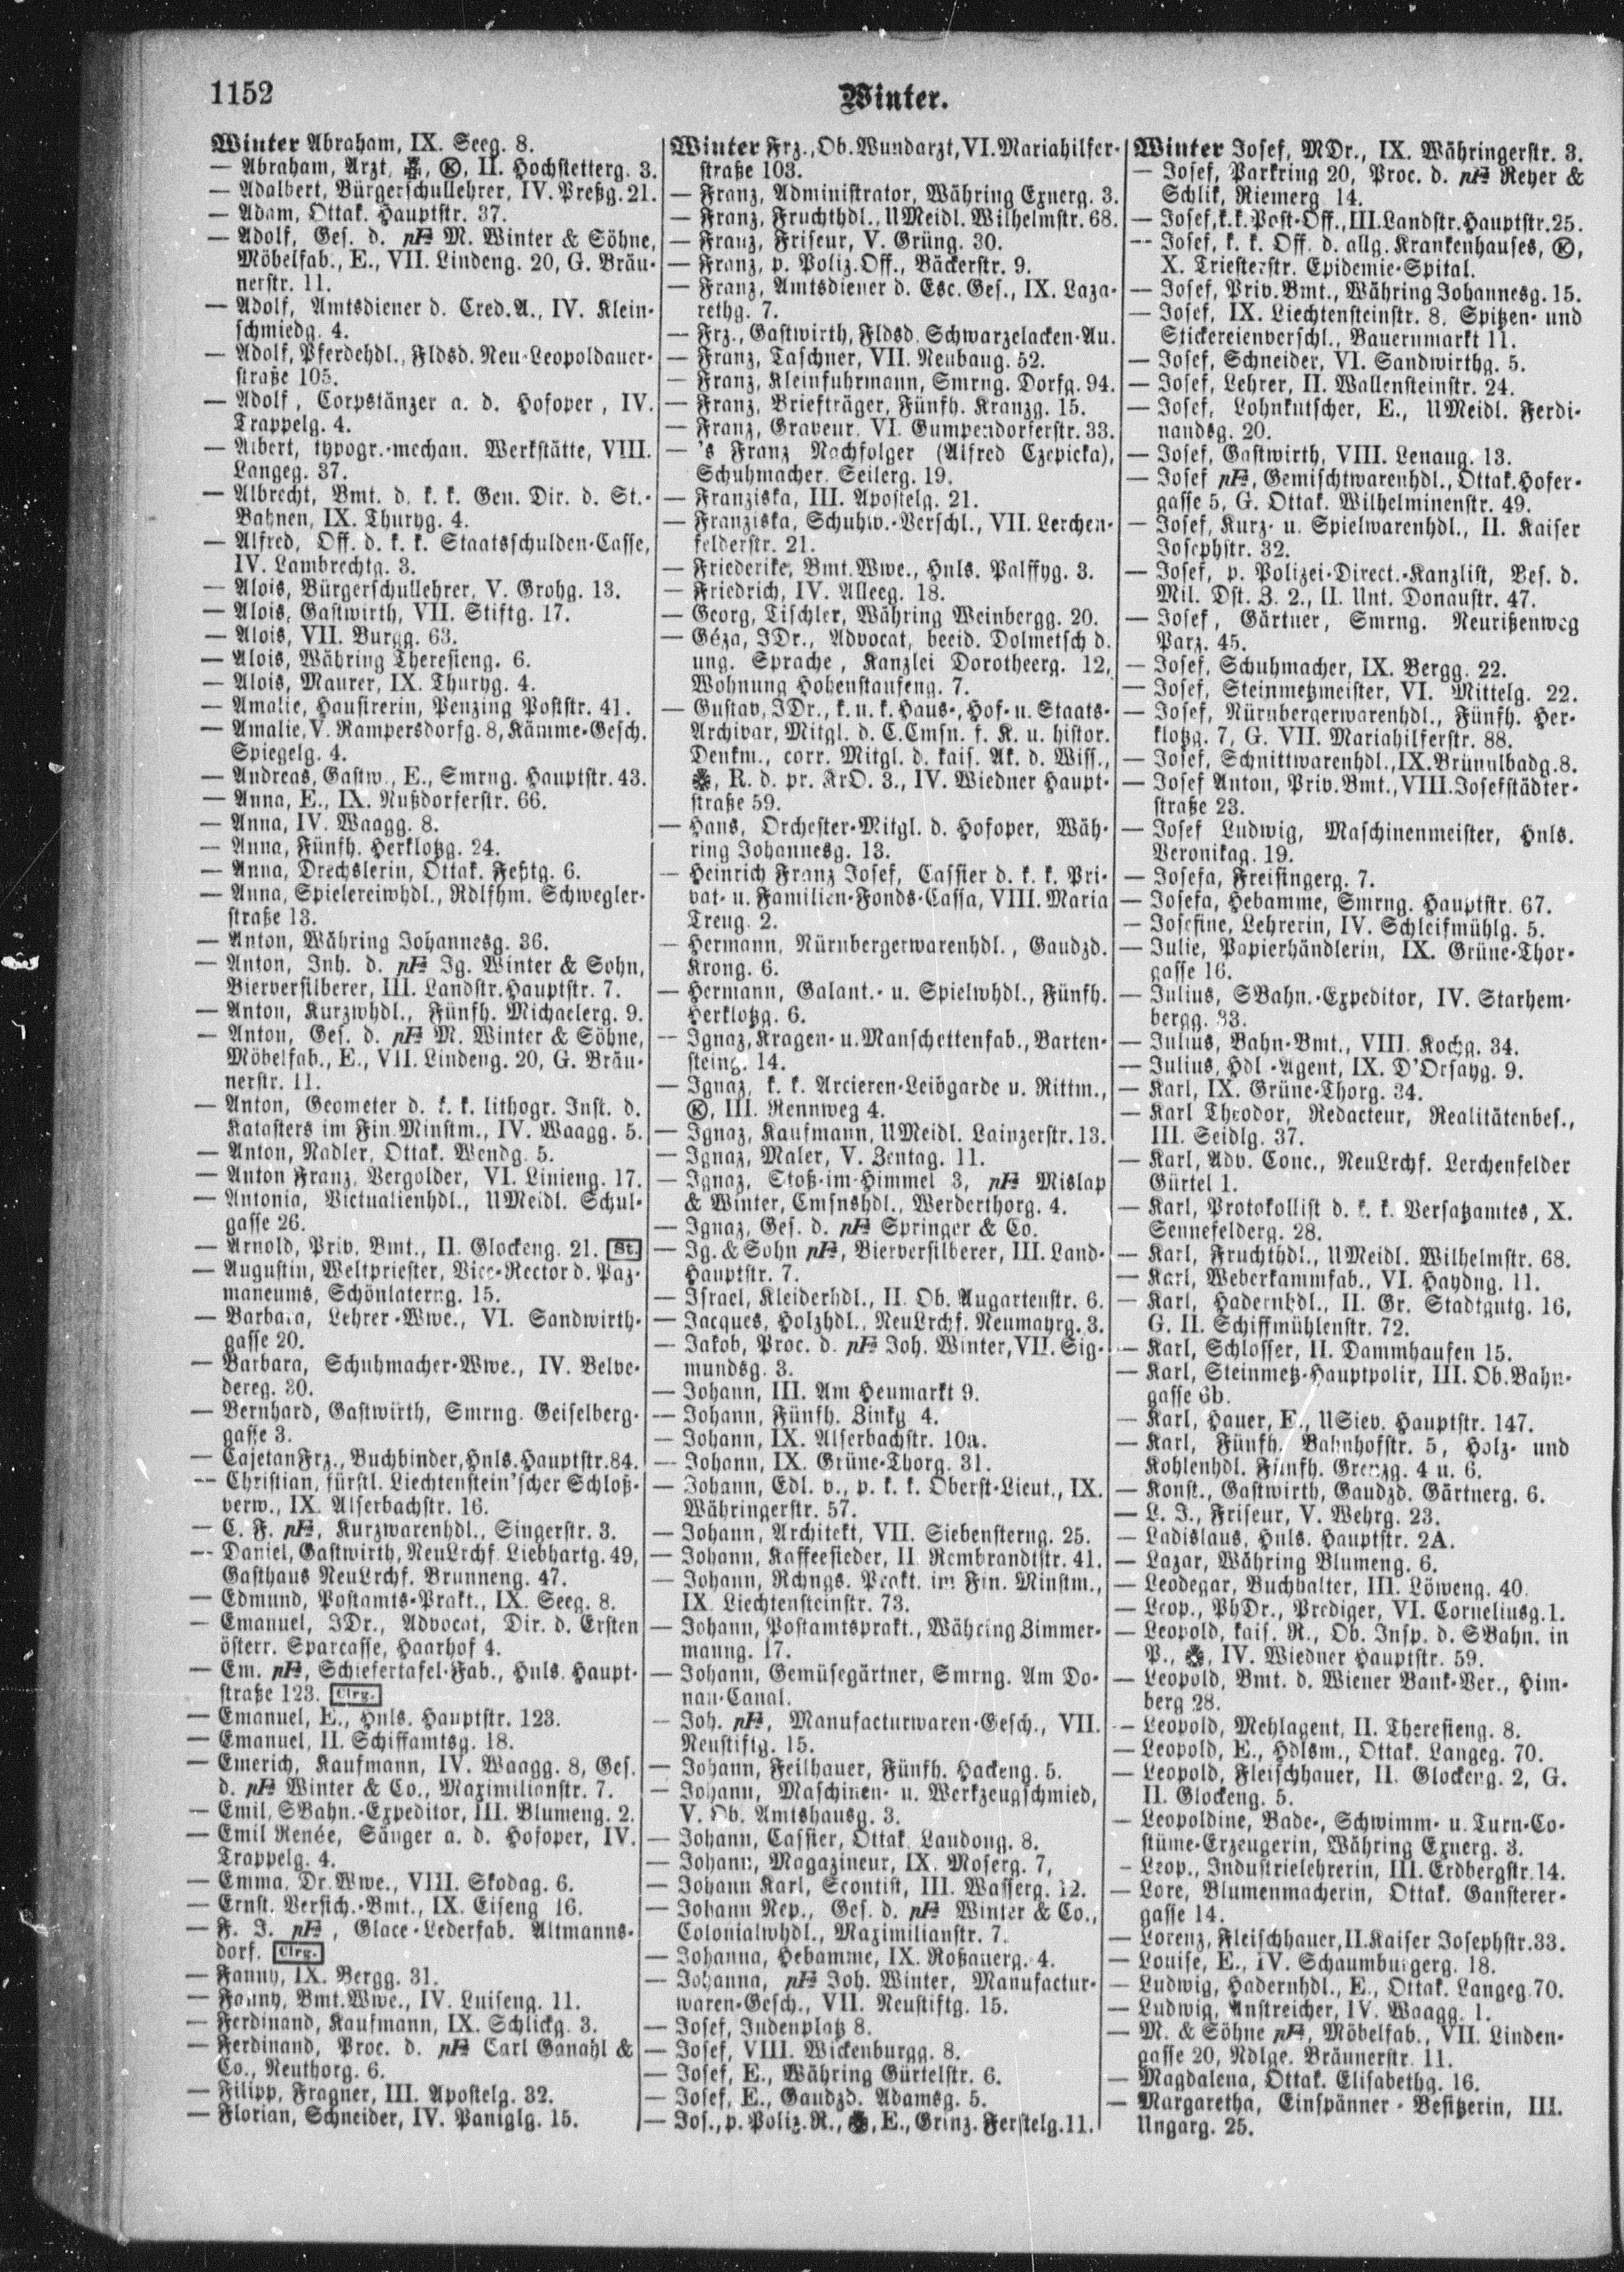 1152
Winter.
Winter Abraham, IX. Seeg. 8.
— Abraham, Arzt, Ⓚ, II. Hochstetterg. 3.
— Adalbert, Bürgerschullehrer, IV. Preßg. 21.
— Adam, Ottak. Hauptstr. 37.
— Adolf, Ges. d. pF M. Winter & Söhne,
Möbelfab., E., VII. Lindeng. 20, G. Bräu-
nerstr. 11.
— Adolf, Amtsdiener d. Cred.A., IV. Klein-
schmiedg. 4.
— Adolf, Pferdehdl., Fldsd. Neu-Leopoldauer-
straße 105.
— Adolf, Corpstänzer a. d. Hofoper, IV.
Trappelg. 4.
— Albert, typogr.-mechan. Werkstätte, VIII.
Langeg. 37.
— Albrecht, Bmt. d. k. k. Gen. Dir. d. St.-
Bahnen, IX. Thuryg. 4.
— Alfred, Off. d. k. k. Staatsschulden-Casse,
IV. Lambrechtg. 3.
— Alois, Bürgerschullehrer, V. Grohg. 13.
— Alois, Gastwirth, VII. Stiftg. 17.
— Alois, VII. Burgg. 63.
— Alois, Währing Theresieng. 6.
— Alois, Maurer, IX. Thuryg. 4.
— Amalie, Hausirerin, Penzing Poststr. 41.
— Amalie, V. Rampersdorfg. 8, Kämme-Gesch.
Spiegelg. 4.
— Andreas, Gastw., E., Smrng. Hauptstr. 43.
— Anna, E., IX. Nußdorferstr. 66.
— Anna, IV. Waagg. 8.
— Anna, Fünfh. Herklotzg. 24.
— Anna, Drechslerin, Ottak. Feßtg. 6.
— Anna, Spielereiwhdl., Rdlfhm. Schwegler-
straße 13.
— Anton, Währing Johannesg. 36.
— Anton, Inh. d. pF Ig. Winter & Sohn,
Bierversilberer, III. Landstr.Hauptstr. 7.
— Anton, Kurzwhdl., Fünfh. Michaelerg. 9.
— Anton, Ges. d. pF M. Winter & Söhne,
Möbelfab., E., VII. Lindeng. 20, G. Bräu-
nerstr. 11.
— Anton, Geometer d. k. k. lithogr. Inst. d.
Katasters im Fin.Minstm., IV. Waagg. 5.
— Anton, Nadler, Ottak. Wendg. 5.
— Anton Franz, Vergolder, VI. Linieng. 17.
— Antonia, Victualienhdl., UMeidl. Schul-
gasse 26.
— Arnold, Priv. Bmt., II. Glockeng. 21. St.
— Augustin, Weltpriester, Vice-Rector d. Paz-
maneums, Schönlaterng. 15.
— Barbara, Lehrer-Wwe., VI. Sandwirth-
gasse 20.
— Barbara, Schuhmacher-Wwe., IV. Belve-
dereg. 30.
— Bernhard, Gastwirth, Smrng. Geiselberg-
gasse 3.
— CajetanFrz., Buchbinder, Hnls.Hauptstr.84.
— Christian, fürstl. Liechtenstein'scher Schloß-
verw., IX. Alserbachstr. 16.
— C. F. pF, Kurzwarenhdl., Singerstr. 3.
— Daniel, Gastwirth, NeuLrchf. Liebhartg. 49,
Gasthaus NeuLrchf. Brunneng. 47.
— Edmund, Postamts-Prakt., IX. Seeg. 8.
— Emanuel, JDr., Advocat, Dir. d. Ersten
österr. Sparcasse, Haarhof 4.
— Em. pF, Schiefertafel-Fab., Hnls. Haupt-
straße 123. Clrg.
— Emanuel, E., Hnls. Hauptstr. 123.
— Emanuel, II. Schiffamtsg. 18.
— Emerich, Kaufmann, IV. Waagg. 8, Ges.
d. pF Winter & Co., Maximilianstr. 7.
— Emil, SBahn.-Expeditor, III. Blumeng. 2.
— Emil Renée, Sänger a. d. Hofoper, IV.
Trappelg. 4.
— Emma, Dr.Wwe., VIII. Skodag. 6.
— Ernst, Versich.-Bmt., IX. Eiseng 16.
— F. J. pF, Glace-Lederfab. Altmanns-
dorf. Clrg.
— Fanny, IX. Bergg. 31.
— Fanny, Bmt.Wwe., IV. Luiseng. 11.
— Ferdinand, Kaufmann, IX. Schlickg. 3.
— Ferdinand, Proc. d. pF Carl Ganahl &
Co., Neuthorg. 6.
— Filipp, Fragner, III. Apostelg. 32.
— Florian, Schneider, IV. Paniglg. 15.
Winter Frz., Ob.Wundarzt, VI. Mariahilfer-
straße 103.
— Franz, Administrator, Währing Exnerg. 3.
— Franz, Fruchthdl., UMeidl. Wilhelmstr. 68.
— Franz, Friseur, V. Grüng. 30.
— Franz, p. Poliz.Off., Bäckerstr. 9.
— Franz, Amtsdiener d. Esc. Ges., IX. Laza-
rethg. 7.
— Frz., Gastwirth, Fldsd. Schwarzelacken-Au.
— Franz, Taschner, VII. Neubaug. 52.
— Franz, Kleinfuhrmann, Smrng. Dorfg. 94.
— Franz, Briefträger, Fünfh. Kranzg. 15.
— Franz, Graveur, VI. Gumpendorferstr. 33.
— 's Franz Nachfolger (Alfred Czepicka),
Schuhmacher, Seilerg. 19.
— Franziska, III. Apostelg. 21.
— Franziska, Schuhw.-Verschl., VII. Lerchen-
felderstr. 21.
— Friederike, Bmt.Wwe., Hnls. Palffyg. 3.
— Friedrich, IV. Alleeg. 18.
— Georg, Tischler, Währing Weinbergg. 20.
— Géza, JDr., Advocat, beeid. Dolmetsch d.
ung. Sprache, Kanzlei Dorotheerg. 12,
Wohnung Hohenstaufeng. 7.
— Gustav, JDr., k. u. k. Haus-, Hof- u. Staats-
Archivar, Mitgl. d. C.Cmsn. f. K. u. histor.
Denkm., corr. Mitgl. d. kais. Ak. d. Wiss.,
R. d. pr. KrO. 3., IV. Wiedner Haupt-
straße 59.
— Hans, Orchester-Mitgl. d. Hofoper, Wäh-
ring Johannesg. 13.
— Heinrich Franz Josef, Cassier d. k. k. Pri-
vat- u. Familien-Fonds-Cassa, VIII. Maria
Treug. 2.
— Hermann, Nürnbergerwarenhdl., Gaudzd.
Krong. 6.
— Hermann, Galant.- u. Spielwhdl., Fünfh.
Herklotzg. 6.
— Ignaz, Kragen- u. Manschettenfab., Barten-
steing. 14.
— Ignaz, k. k. Arcieren-Leibgarde u. Rittm.,
Ⓚ, III. Rennweg 4.
— Ignaz, Kaufmann, UMeidl. Lainzerstr. 13.
— Ignaz, Maler, V. Zentag. 11.
— Ignaz, Stoß-im-Himmel 3, pF Mislap
& Winter, Cmsnshdl., Werderthorg. 4.
— Ignaz, Ges. d. pF Springer & Co.
— Ig. & Sohn pF, Bierversilberer, III. Land-
Hauptstr. 7.
— Israel, Kleiderhdl., II. Ob. Augartenstr. 6.
— Jacques, Holzhdl., NeuLrchf. Neumayrg. 3.
— Jakob, Proc. d. pF Joh. Winter, VII. Sig-
mundsg. 3.
— Johann, III. Am Heumarkt 9.
— Johann, Fünfh. Zinkg 4.
— Johann, IX. Alserbachstr. 10a.
— Johann, IX. Grüne-Thorg. 31.
— Johann, Edl. v., p. k. k. Oberst-Lieut., IX.
Währingerstr. 57.
— Johann, Architekt, VII. Siebensterng. 25.
— Johann, Kaffeesieder, II. Rembrandtstr. 41.
— Johann, Rchngs. Prakt. im Fin. Minstm.,
IX. Liechtensteinstr. 73.
— Johann, Postamtsprakt., Währing Zimmer-
manng. 17.
— Johann, Gemüsegärtner, Smrng. Am Do-
nau-Canal.
— Joh. pF, Manufacturwaren-Gesch., VII.
Neustiftg. 15.
— Johann, Feilhauer, Fünfh. Hackeng. 5.
— Johann, Maschinen- u. Werkzeugschmied,
V. Ob. Amtshausg. 3.
— Johann, Cassier, Ottak. Laudong. 8.
— Johann, Magazineur, IX. Moserg. 7,
— Johann Karl, Scontist, III. Wasserg. 12.
— Johann Nep., Ges. d. pF Winter & Co.,
Colonialwhdl., Maximilianstr. 7.
— Johanna, Hebamme, IX. Roßauerg. 4.
— Johanna, pF Joh. Winter, Manufactur-
waren-Gesch., VII. Neustiftg. 15.
— Josef, Judenplatz 8.
— Josef, VIII. Wickenburgg. 8.
— Josef, E., Währing Gürtelstr. 6.
— Josef, E., Gaudzd. Adamsg. 5.
— Jos., p. Poliz.R., E., Grinz. Ferstelg. 11.
Winter Josef, MDr., IX. Währingerstr. 3.
— Josef, Parkring 20, Proc. d. pF Reyer &
Schlik, Riemerg 14.
— Josef, k.k. Post-Off., III. Landstr.Hauptstr. 25.
— Josef, k. k. Off. d. allg. Krankenhauses, Ⓚ,
X. Triesterstr. Epidemie-Spital.
— Josef, Priv.Bmt., Währing Johannesg. 15.
— Josef, IX. Liechtensteinstr. 8, Spitzen- und
Stickereienverschl., Bauernmarkt 11.
— Josef, Schneider, VI. Sandwirthg. 5.
— Josef, Lehrer, II. Wallensteinstr. 24.
— Josef, Lohnkutscher, E., UMeidl. Ferdi-
nandsg. 20.
— Josef, Gastwirth, VIII. Lenaug. 13.
— Josef pF, Gemischtwarenhdl., Ottak. Hofer-
gasse 5, G. Ottak. Wilhelminenstr. 49.
— Josef, Kurz- u. Spielwarenhdl., II. Kaiser
Josephstr. 32.
— Josef, p. Polizei-Direct.-Kanzlist, Bes. d.
Mil. Dst. Z. 2., II. Unt. Donaustr. 47.
— Josef, Gärtner, Smrng. Neurißenweg
Parz. 45.
— Josef, Schuhmacher, IX. Bergg. 22.
— Josef, Steinmetzmeister, VI. Mittelg. 22.
— Josef, Nürnbergerwarenhdl., Fünfh. Her-
klotzg. 7, G. VII. Mariahilferstr. 88.
— Josef, Schnittwarenhdl., IX. Brünnlbadg. 8.
— Josef Anton, Priv.Bmt., VIII. Josefstädter-
straße 23.
— Josef Ludwig, Maschinenmeister, Hnls.
Veronikag. 19.
— Josefa, Freisingerg. 7.
— Josefa, Hebamme, Smrng. Hauptstr. 67.
— Josefine, Lehrerin, IV. Schleifmühlg. 5.
— Julie, Papierhändlerin, IX. Grüne-Thor-
gasse 16.
— Julius, SBahn.-Expeditor, IV. Starhem-
bergg. 33.
— Julius, Bahn-Bmt., VIII. Kochg. 34.
— Julius, Hdl.-Agent, IX. D'Orsayg. 9.
— Karl, IX. Grüne-Thorg. 34.
— Karl Theodor, Redacteur, Realitätenbes.,
III. Seidlg. 37.
— Karl, Adv. Conc., NeuLrchf. Lerchenfelder
Gürtel 1.
— Karl, Protokollist d. k. k. Versatzamtes, X.
Sennefelderg. 28.
— Karl, Fruchthdl., UMeidl. Wilhelmstr. 68.
— Karl, Weberkammfab., VI. Haydng. 11.
— Karl, Hadernhdl., II. Gr. Stadtgutg. 16,
G. II. Schiffmühlenstr. 72.
— Karl, Schlosser, II. Dammhaufen 15.
— Karl, Steinmetz-Hauptpolir, III. Ob.Bahn-
gasse 6b.
— Karl, Hauer, E., USiev. Hauptstr. 147.
— Karl, Fünfh. Bahnhofstr. 5, Holz- und
Kohlenhdl. Fünfh. Grenzg. 4 u. 6.
— Konst., Gastwirth, Gaudzd. Gärtnerg. 6.
— L. J., Friseur, V. Wehrg. 23.
— Ladislaus, Hnls. Hauptstr. 2A.
— Lazar, Währing Blumeng. 6.
— Leodegar, Buchhalter, III. Löweng. 40.
— Leop., PhDr., Prediger, VI. Corneliusg. 1.
— Leopold, kais. R., Ob. Insp. d. SBahn. in
P., IV. Wiedner Hauptstr. 59.
— Leopold, Bmt. d. Wiener Bank-Ver., Him-
berg 28.
— Leopold, Mehlagent, II. Theresieng. 8.
— Leopold, E., Hdlsm., Ottak. Langeg. 70.
— Leopold, Fleischhauer, II. Glockeng. 2, G.
II. Glockeng. 5.
— Leopoldine, Bade-, Schwimm- u. Turn-Co-
stüme-Erzeugerin, Währing Exnerg. 3.
— Leop., Industrielehrerin, III. Erdbergstr. 14.
— Lore, Blumenmacherin, Ottak. Gansterer-
gasse 14.
— Lorenz, Fleischhauer, II. Kaiser Josephstr. 33.
— Louise, E., IV. Schaumburgerg. 18.
— Ludwig, Hadernhdl., E., Ottak. Langeg. 70.
— Ludwig, Anstreicher, IV. Waagg. 1.
— M. & Söhne pF, Möbelfab., VII. Linden-
gasse 20, Ndlge. Bräunerstr. 11.
— Magdalena, Ottak. Elisabethg. 16.
— Margaretha, Einspänner-Besitzerin, III.
Ungarg. 25.